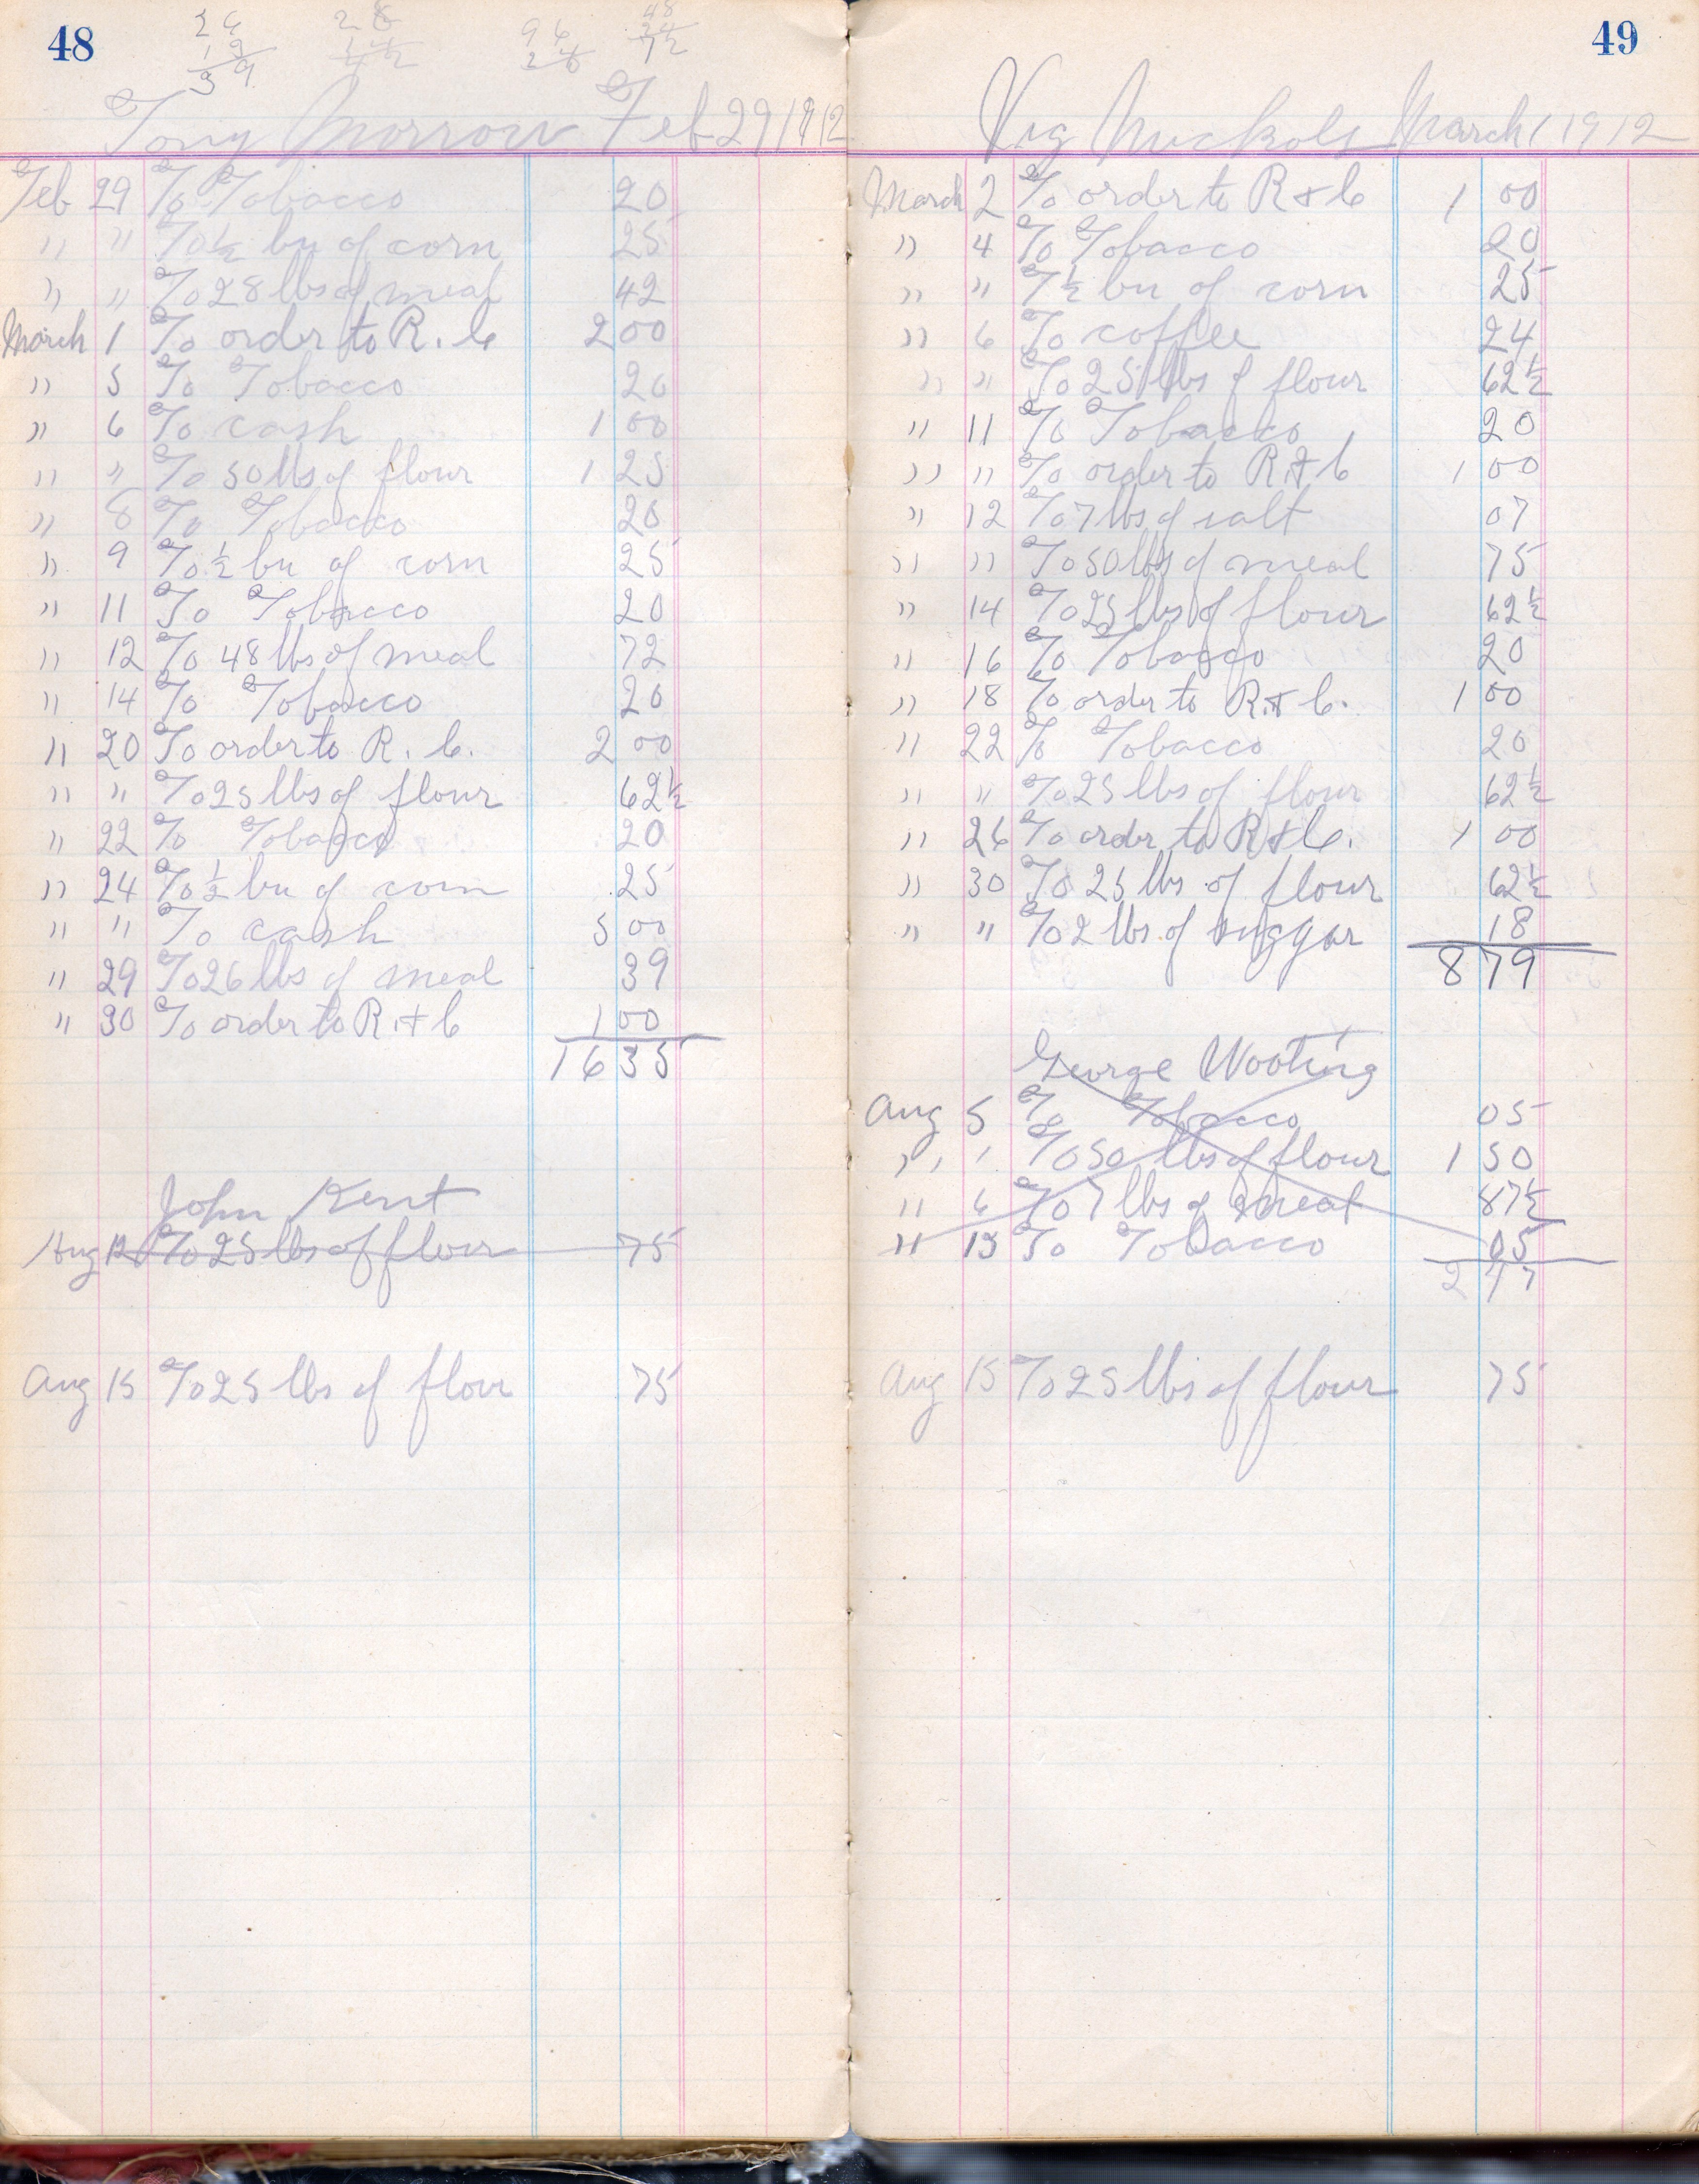 48
26 28 96 48
13 14 24
39 42 24 72
Tony Morrow Feb 29 1912
Feb 29 To Tobacco 20
" " To ½ bu of corn 25
" " To 28 lbs of meal 42
March 1 To order to R. C 2 00
" 5 To Tobacco 20
" 6 To cash 1 00
" " To 50 lbs of flour 1 25
" 8 To Tobacco 20
" 9 To ½ bu of corn 25
" 11 To Tobacco 20
" 12 To 48 lbs of meal 72
" 14 To Tobacco 20
" 20 To order to R. C. 2 00
" " To 25 lbs of flour 62½
" 22 To Tobacco 20
" 24 To ½ bu of corn 25
" " To cash 5 00
" 29 To 26 lbs of meal 39
" 30 To order to R. + C 1 00
16 35
John Kent
Aug 12 To 25 lbs of flour 75
Aug 15 To 25 lbs of flour 75
49
Vig Nuckols March 1 1912
March 2 To order to R + C 1 00
" 4 To Tobacco 20
" " T ½ bu of corn 25
" 6 To coffee 24
" " To 25 lbs of flour 62½
" 11 To Tobacco 20
" " To order to R + C 1 00
" 12 To 7 lbs of salt 07
" " To 50 lbs of meal 75
" 14 To 25 lbs of flour 62½
" 16 To Tobacco 20
" 18 To order to R. + C. 1 00
" 22 To Tobacco 20
" " To 25 lbs of flour 62½
" 26 To order to R + C. 1 00
" 30 To 25 lbs of flour 62½
" " To 2 lbs of suggar 18
8 79
George Wooting
Aug 5 To Tobacco 05
" " To 50 lbs of flour 1 50
" 6 To 7 lbs of meat 87½
" 15 To Tobacco 05
2 47
Aug 15 To 25 lbs of flour 75